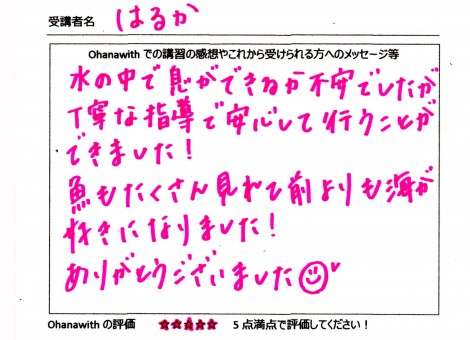 受講者名 はるか
Ohanawith での講習の感想やこれから受けられる方へのメッセージ等
水の中で息ができるか不安でしたが
丁寧な指導で安心して行うことが
できました！
魚もたくさん見れて前よりも海が
好きになりました！
ありがとうございました
Ohanawith の評価 ☆☆☆☆☆ 5点満点で評価してください！